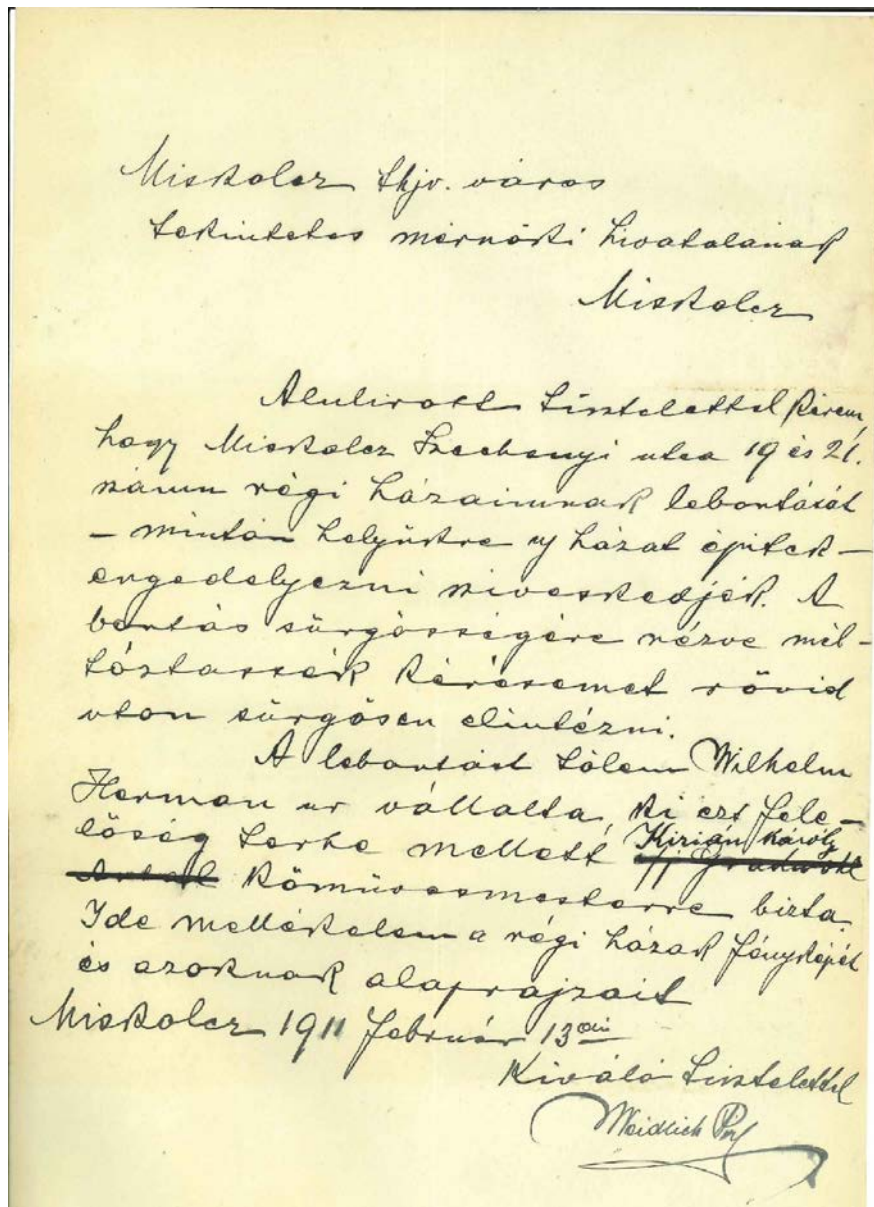 Miskolcz thjv. város
tekintetes mérnöki hivatalának
Miskolcz
Alulirott tisztelettel kérem,
hogy Miskolcz Szechenyi utca 19 és 21.
számu régi házaimnak lebontását
– mintán helyüktre uj házat épitek –
engedélyezni sziveskedjék. A
bontás sürgősségére nézve mél-
tóztassék kérésemet rövid
uton sürgősen elintézni.
A lebontást tőlem Wilhelm
Herman ur vállalta, ki ezt fele-
lőség terhe mellett Kirián Károly
kőmüvesmesterre bizta.
Ide mellékelem a régi házak fényképét
és azoknak alaprajzait
Miskolcz 1911 február 13 án
Kiváló tisztelettel
Weidlich Pál